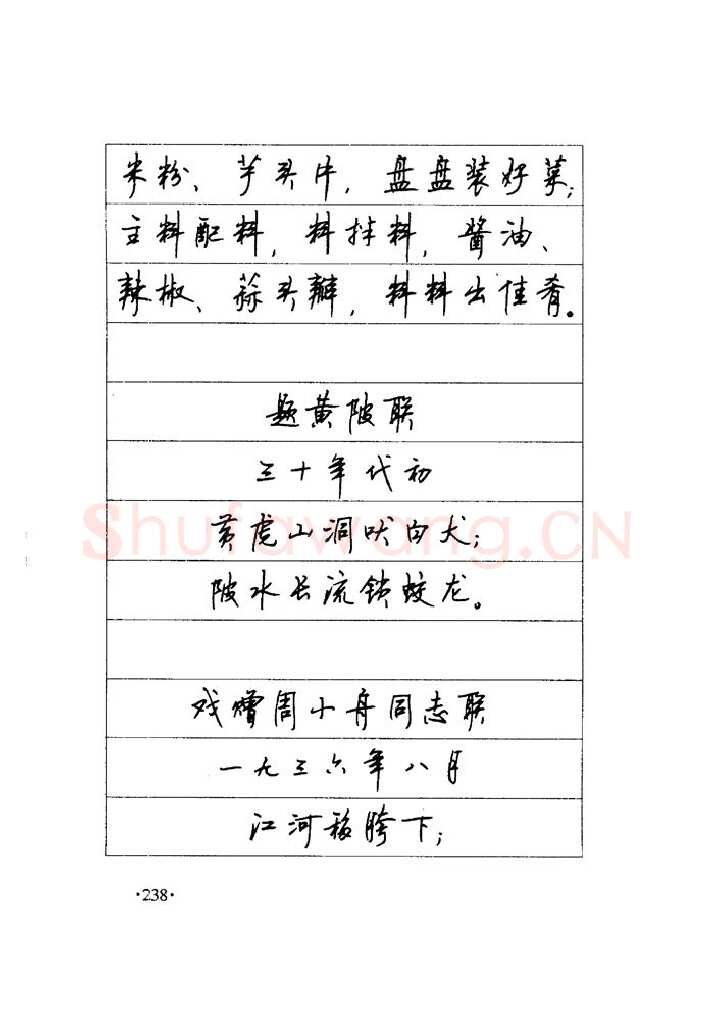 米粉、芋头片，盘盘装好菜；
主料配料，料拌料，酱油、
辣椒、蒜头瓣，料料出佳肴。
题黄陂联
三十年代初
黄虎山洞吠白犬；
陂水长流锁蛟龙。
戏赠周小舟同志联
一九三六年八月
江河移胯下；
·238·
Shufawang.CN